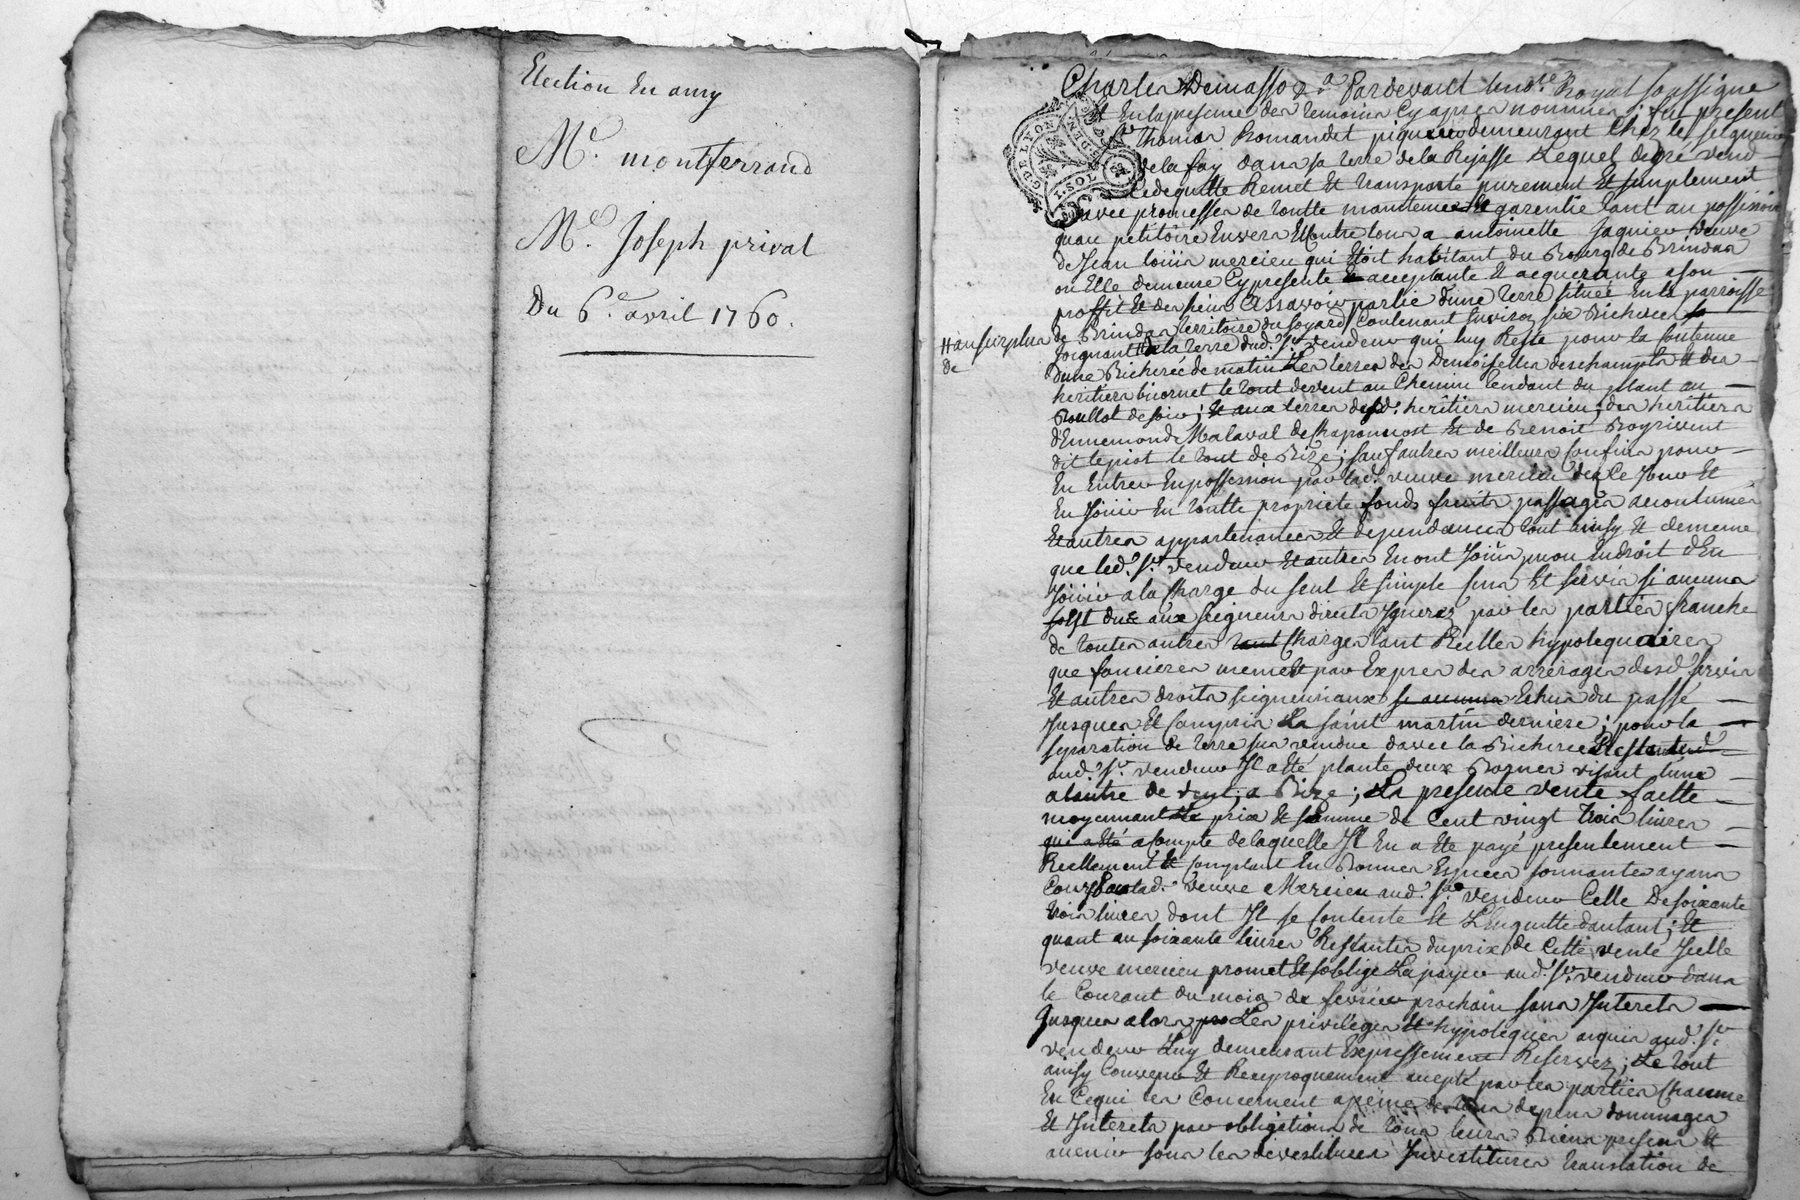 Election En amy
Me. montferrand
Me. Joseph privat
Du 6e. avril 1760.
Pardevant Royal soussigné
Et En la presence des temoins Cy apres nommés ; fut present
Sr. Thomas Romandet piqueur demeurant Chez le seigneur
de la fay dans sa terre de la Rejasse Lequel de gré vend
Cede quitte Remet Et transporte purement Et simplement
avec promesses de toutte maintenue Et garentie tant au possessoire
quau petitoire Envers Et Contre tous a antoinette Jaquier veuve
de Jean loüis mercieu qui Etoit habitant du Bourg de Brindas
ou Elle demeure Cy presente acceptante Et acquerante a son
proffit Et des siens Assavoir partie d'une terre située En la parroisse
de Brindas territoire du soyard Contenant Environ six Bicherées
++ au surplus
de
joignant la terre dud. Sr. vendeur qui luy Reste pour la Contenue
d'une Bicherée de matin Les terres des Demoiselles deschamps Et des
heritiers biornet le tout devent au Chemin tendant du plant au
Boullot de soir ; Et aux terres desd. heritiers mercieu ; des heritiers
d'Ennemond Malaval de Chaponnost Et de Benoit Boyrivent
dit le piot le tout de Bize ; sauf autres meilleurs Confins pour
En Entrer En possession par lad. veuve mercieu dez Ce Jour Et
En Joüir En toutte proprieté fonds fruits passages accoutumés
Et autres appartenances Et dependances tout ainsy Et de meme
que led. Sr. vendeur Et autres En ont Joüis ou En droit d'En
Joüir a la Charge du seul Et simple Cens Et servis si aucuns
sont dus aux seigneurs directs Ignorez par les parties franche
de toutes autres Charges tant Reelles hypotequaires
que foncieres memes par Exprès des arrerages desd. servis
Et autres droits seigneuriaux si aucuns Echus du passé
Jusques Et Compris La saint martin derniere ; pour la
separation de terre sus vendue d'avec la Bicherée Restante
aud. Sr. vendeur Il a Eté planté deux Bornes visant l'une
a l'autre de vent, a Bize ; La presente vente faitte
moyennant le prix Et somme de Cent vingt trois livres
qui a Eté a Compte de laquelle Il En a Eté payé presentement
Reellement Et Comptant En Bonnes Especes sonnantes ayans
Cours par lad. veuve Mercieu aud. Sr. vendeur Celle De soixante
trois livres dont Il se Contente Et L'En quitte d'autant ; Et
quant au soixante livres Restantes du prix de Cette vente Icelle
veuve mercieu promet Et s'oblige La payer aud. Sr. vendeur dans
le Courant du mois de fevrier prochain sans Interets
Jusques alors Les privileges Et hypoteques acquis aud. Sr.
vendeur Luy demeurant Expressement Reservez ; Le tout
ainsy Convenu Et Reciproquement accepté par les parties Chacune
En Ce qui les Concernent a peine de tous depens dommages
Et Interets par obligations de tous leurs Biens presens Et
avenir sous les devestitures Investitures translation de